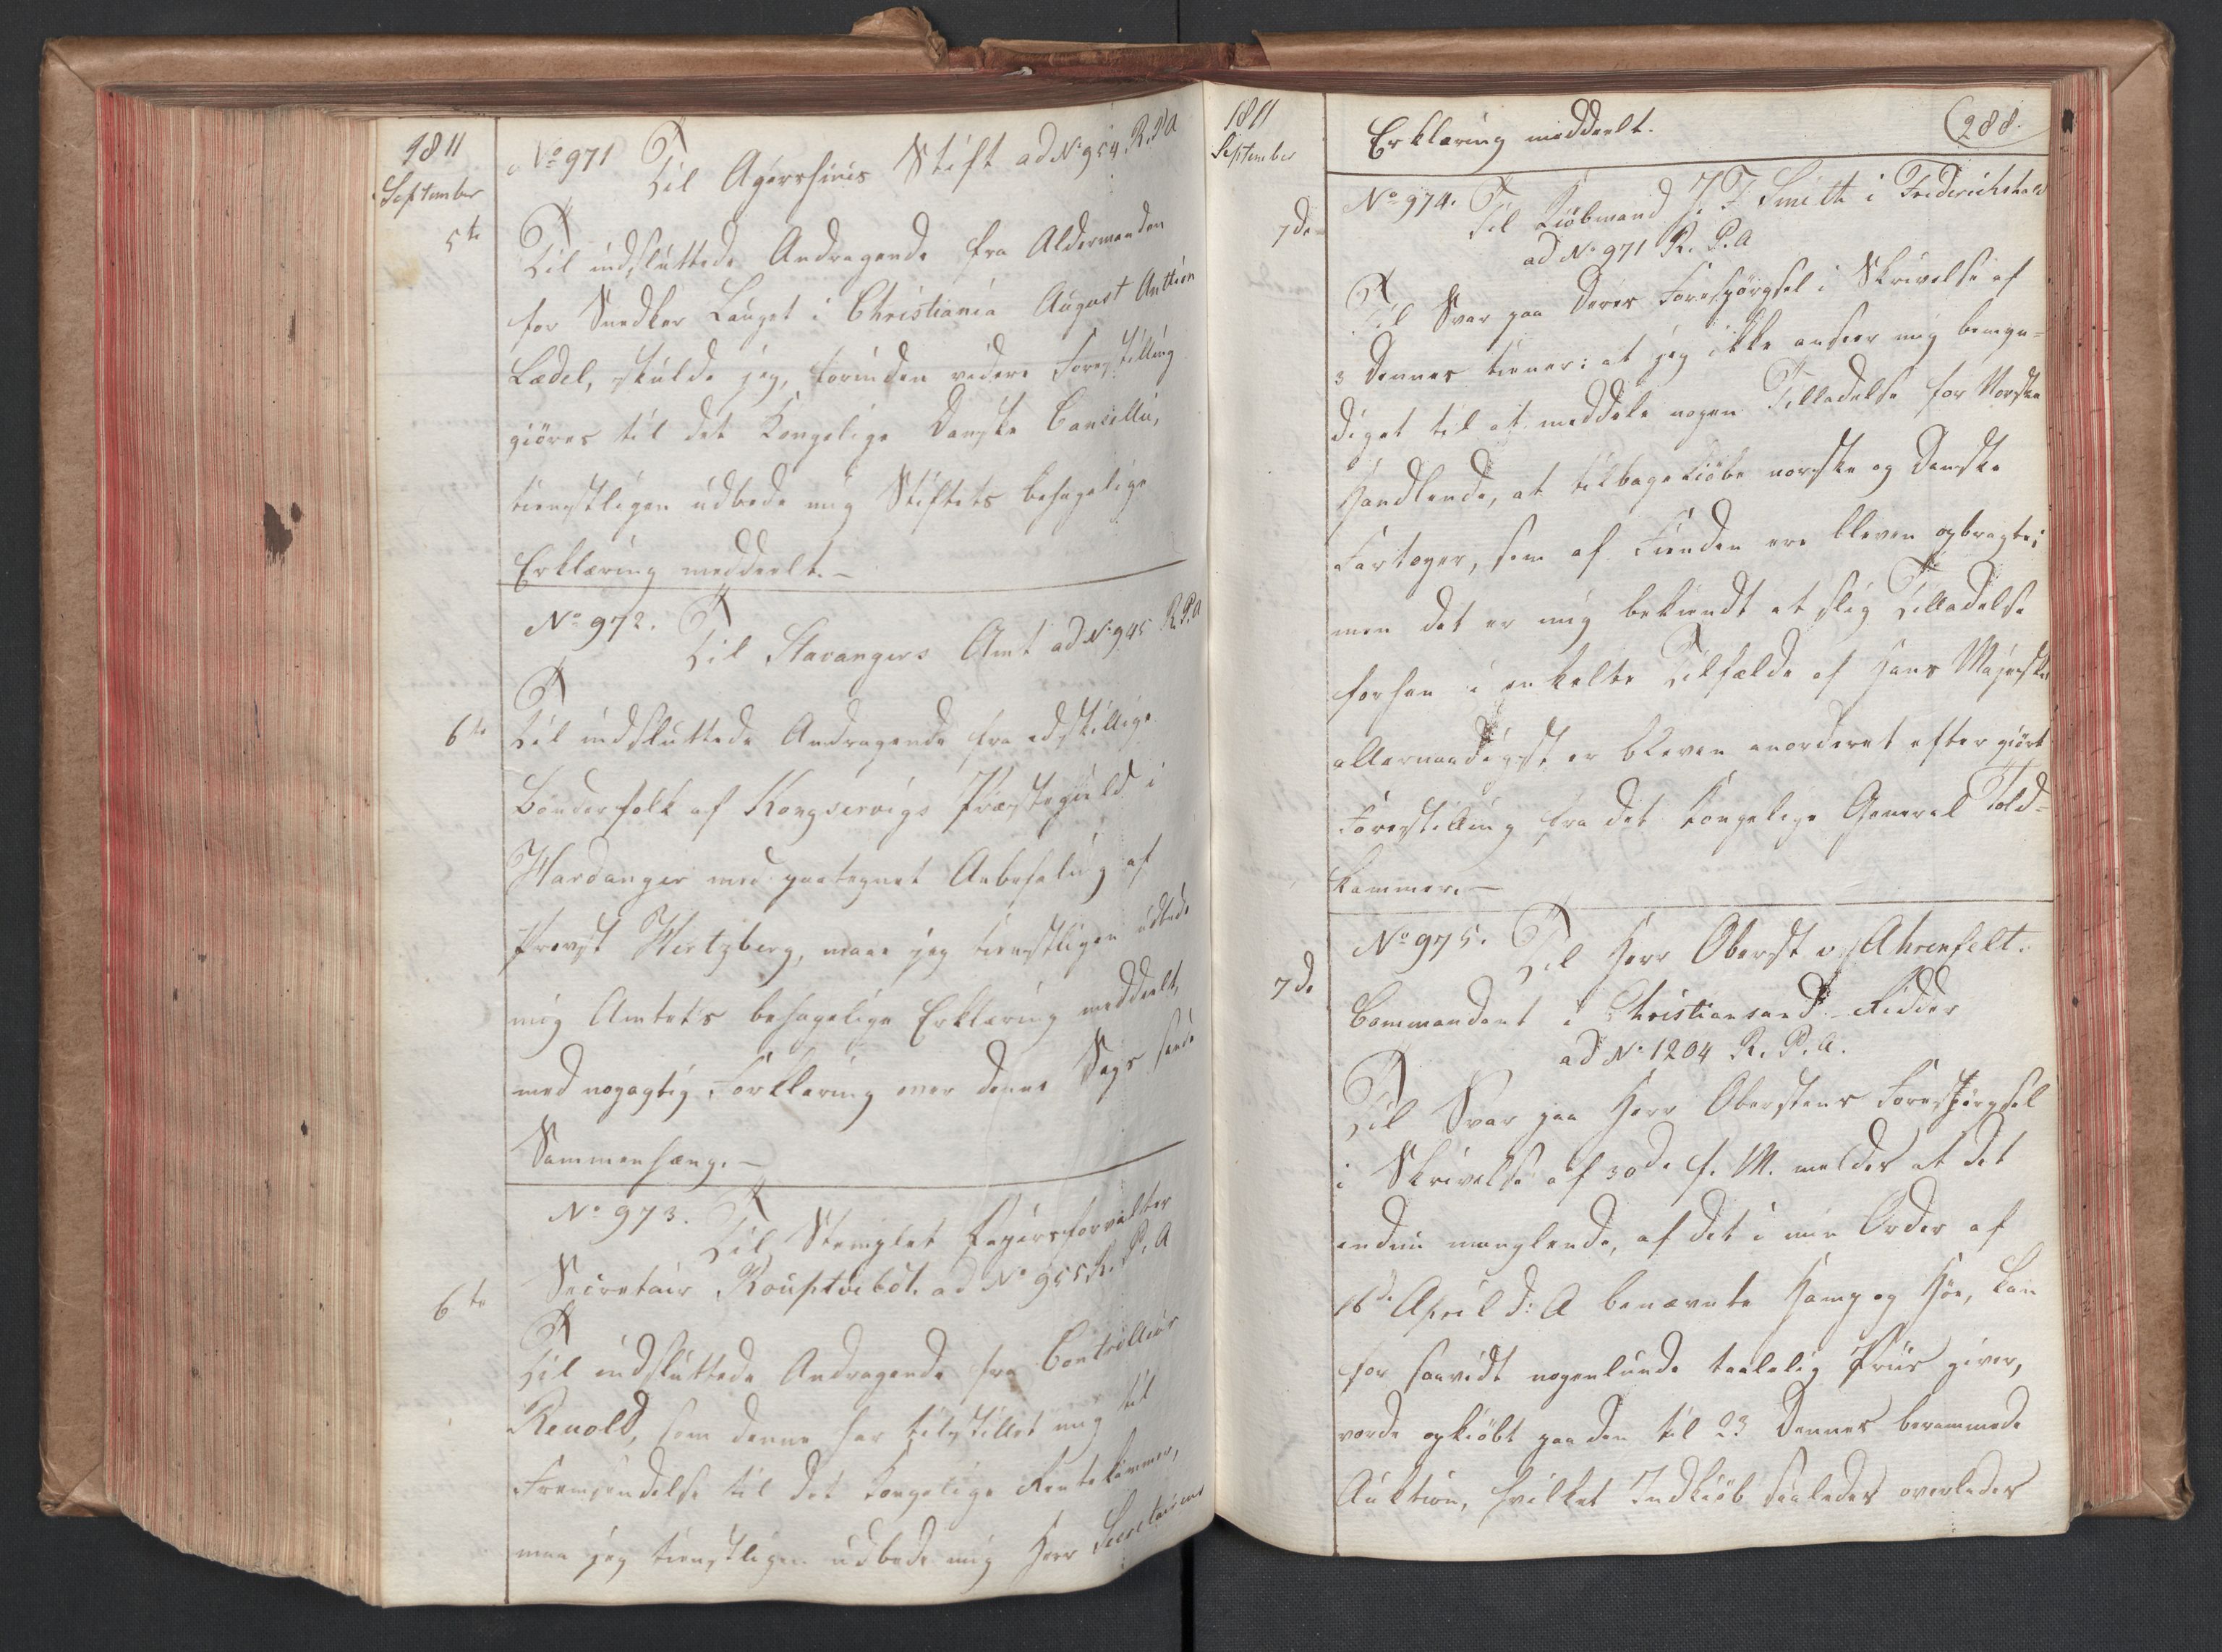 1811
September
5te
No 971 Til Agershuus Stift ad No 954 R.P.A
Til indsluttede Andragende fra Aldermanden
for Snedker Lauget i Christiania August Anthon
Ladel, skulde jeg, forinden videre Forestilling
giöres til det Kongelige Danske Cancellie,
tienstligen udbede mig Stiftets behagelige
Erklæring meddeelt.-
No 972.
Til Stavangers Amt ad No 945 R.P.A
6te Til indsluttede Andragende fra adskillige
Bönderfolk af Kongservigs Præstegield i
Hardanger med paategnet Anbefaling af
Provst Hertzberg, maae jeg tienstligen udbede
mig Amtets behagelige Erklæring meddeelt,
med nøyagtig Forklaring over denne Sags sande
Sammenhæng.-
No 973.
Til Stemplet Papiirsforvalter
Secretair ad No 955 R.P.A
6te
Til indsluttede Andragende fra Controlleur
Renold, som denne har tilstillet mig til
Fremsendelse til det Kongelige Rentekammer,
maa jeg tienstligen udbede mig Herr Secretairens
1811
September
Erklæring meddeelt.
288.
7de
No 974. Til Kiöbmand J. F. Smith i Friderichshald
ad No 971 R. P. A
Til Svar paa Deres Forespörgsel i Skrivelse af
3 Dennes tiener: at jeg ikke anseer mig bemyn-
diget til at meddele nogen Tilladelse for Norske
Handlende, at tilbagekiöbe norske og Danske
Fartøyer, som af Fienden ere bleven opbragte;
men det er mig bekiendt at slig Tilladelse
forhen i enkelte Tilfælde af Hans Majestæt
allernaadigst er bleven anorderet efter giort
Forestilling fra det Kongelige General Told-
kammer.-
7de
No 975. Til Herr Oberst v. Ahrenfelt.
Commandant i Christiansand - Ridder
ad No 1204 R. P. A.
Til Svar paa Herr Oberstens Forespörgsel
i Skrivelse af 30de f. M. meldes at det
endnu manglende, af det i min Ordre af
16de April d: A benævnte Hamp og Höe, kan
for saavidt nogenlunde taalelig Priis giver,
vorde opkiöbt paa den til 23 Dennes berammede
Auktion, hvilket Indkiöb saaledes overlades